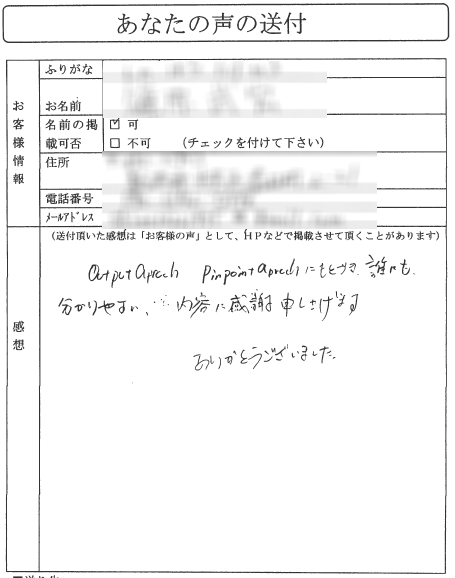 あなたの声の送付
お客様情報
ふりがな
お名前
名前の掲載可否
☑ 可
☐ 不可 (チェックを付けて下さい)
住所
電話番号
メールアドレス
(送付頂いた感想は「お客様の声」として、HPなどで掲載させて頂くことがあります)
感想
Output Aproch Pinpoint Aproch にもとづき、誰にも
分かりやすい、内容に感謝申し上げます
ありがとうございました。